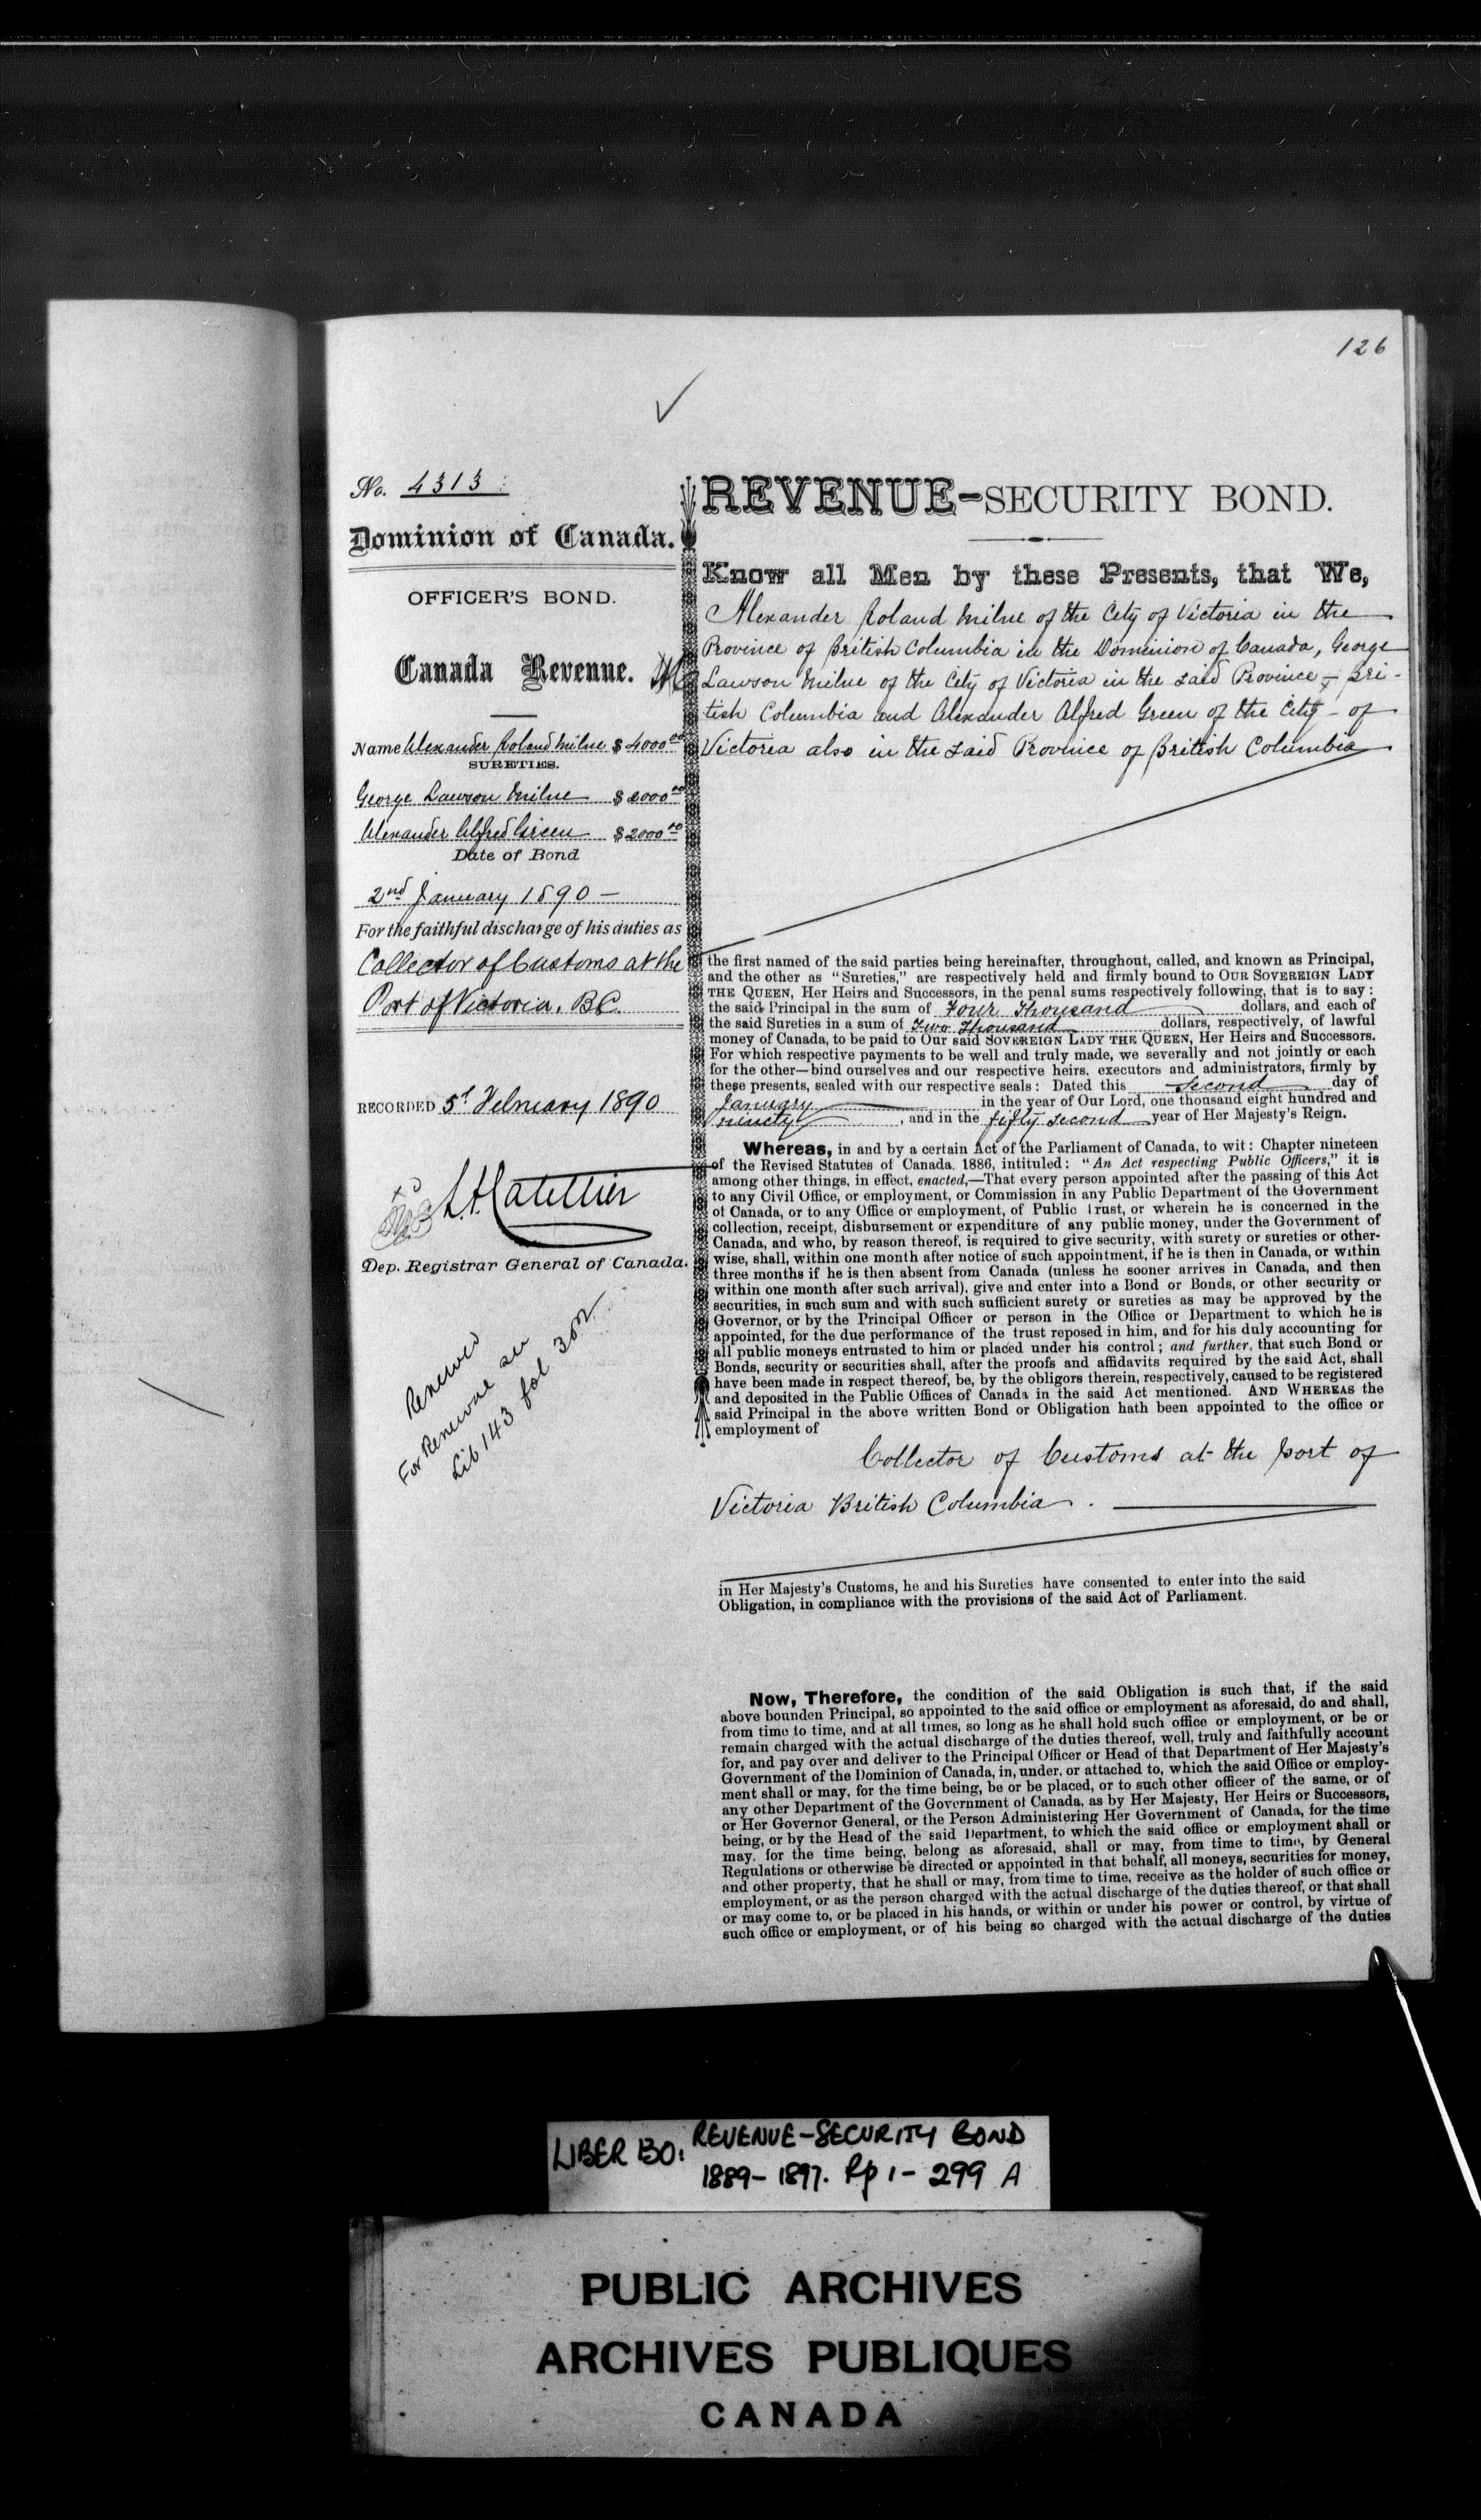 126
No. 4313
Dominion of Canada.
OFFICER'S BOND.
Canada Revenue.
Name Alexander Roland Milne $ 4000 00
SURETIES.
George Lawson Milne $ 2000 00
Alexander Alfred Green $ 2000 00
Date of Bond
2nd January 1890 —
For the faithful discharge of his duties as
Collector of Customs at the
Port of Victoria, B.C.
RECORDED 5th February 1890
L.A. Catellier
Dep. Registrar General of Canada.
Renewed
For Renewal see
Lib 143 fol 302
REVENUE-SECURITY BOND.
Know all Men by these Presents, that We,
Alexander Roland Milne of the City of Victoria in the
Province of British Columbia in the Dominion of Canada, George
Lawson Milne of the City of Victoria in the said Province of Bri-
tish Columbia and Alexander Alfred Green of the City - of
Victoria also in the said Province of British Columbia
the first named of the said parties being hereinafter, throughout, called, and known as Principal,
and the other as "Sureties," are respectively held and firmly bound to OUR SOVEREIGN LADY
THE QUEEN, Her Heirs and Successors, in the penal sums respectively following, that is to say:
the said Principal in the sum of Four Thousand dollars, and each of
the said Sureties in a sum of Two Thousand dollars, respectively, of lawful
money of Canada, to be paid to Our said SOVEREIGN LADY THE QUEEN, Her Heirs and Successors.
For which respective payments to be well and truly made, we severally and not jointly or each
for the other—bind ourselves and our respective heirs, executors and administrators, firmly by
these presents, sealed with our respective seals: Dated this second day of
January in the year of Our Lord, one thousand eight hundred and
ninety, and in the fifty second year of Her Majesty's Reign.
Whereas, in and by a certain Act of the Parliament of Canada, to wit: Chapter nineteen
of the Revised Statutes of Canada, 1886, intituled: "An Act respecting Public Officers," it is
among other things, in effect, enacted,—That every person appointed after the passing of this Act
to any Civil Office, or employment, or Commission in any Public Department of the Government
of Canada, or to any Office or employment, of Public Trust, or wherein he is concerned in the
collection, receipt, disbursement or expenditure of any public money, under the Government of
Canada, and who, by reason thereof, is required to give security, with surety or sureties or other-
wise, shall, within one month after notice of such appointment, if he is then in Canada, or within
three months if he is then absent from Canada (unless he sooner arrives in Canada, and then
within one month after such arrival), give and enter into a Bond or Bonds, or other security or
securities, in such sum and with such sufficient surety or sureties as may be approved by the
Governor, or by the Principal Officer or person in the Office or Department to which he is
appointed, for the due performance of the trust reposed in him, and for his duly accounting for
all public moneys entrusted to him or placed under his control; and further, that such Bond or
Bonds, security or securities shall, after the proofs and affidavits required by the said Act, shall
have been made in respect thereof, be, by the obligors therein, respectively, caused to be registered
and deposited in the Public Offices of Canada in the said Act mentioned. AND WHEREAS the
said Principal in the above written Bond or Obligation hath been appointed to the office or
employment of
Collector of Customs at the port of
Victoria British Columbia.
in Her Majesty's Customs, he and his Sureties have consented to enter into the said
Obligation, in compliance with the provisions of the said Act of Parliament.
Now, Therefore, the condition of the said Obligation is such that, if the said
above bounden Principal, so appointed to the said office or employment as aforesaid, do and shall,
from time to time, and at all times, so long as he shall hold such office or employment, or be or
remain charged with the actual discharge of the duties thereof, well, truly and faithfully account
for, and pay over and deliver to the Principal Officer or Head of that Department of Her Majesty's
Government of the Dominion of Canada, in, under, or attached to, which the said Office or employ-
ment shall or may, for the time being, be or be placed, or to such other officer of the same, or of
any other Department of the Government of Canada, as by Her Majesty, Her Heirs or Successors,
or Her Governor General, or the Person Administering Her Government of Canada, for the time
being, or by the Head of the said Department, to which the said office or employment shall or
may, for the time being, belong as aforesaid, shall or may, from time to time, by General
Regulations or otherwise be directed or appointed in that behalf, all moneys, securities for money,
and other property, that he shall or may, from time to time, receive as the holder of such office or
employment, or as the person charged with the actual discharge of the duties thereof, or that shall
or may come to, or be placed in his hands, or within or under his power or control, by virtue of
such office or employment, or of his being so charged with the actual discharge of the duties
LIBER 130: REVENUE-SECURITY BOND
1889-1897. Pp 1-299 A
PUBLIC ARCHIVES
ARCHIVES PUBLIQUES
CANADA